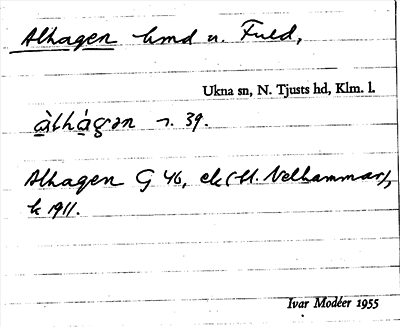 Alhagen hmd u. Fuld,
Ukna sn, N. Tjusts hd, Klm. l.
àlhágən 39.
Alhagen G 46, ek (St. Velhammar),
k 1911.
Ivar Modéer 1955